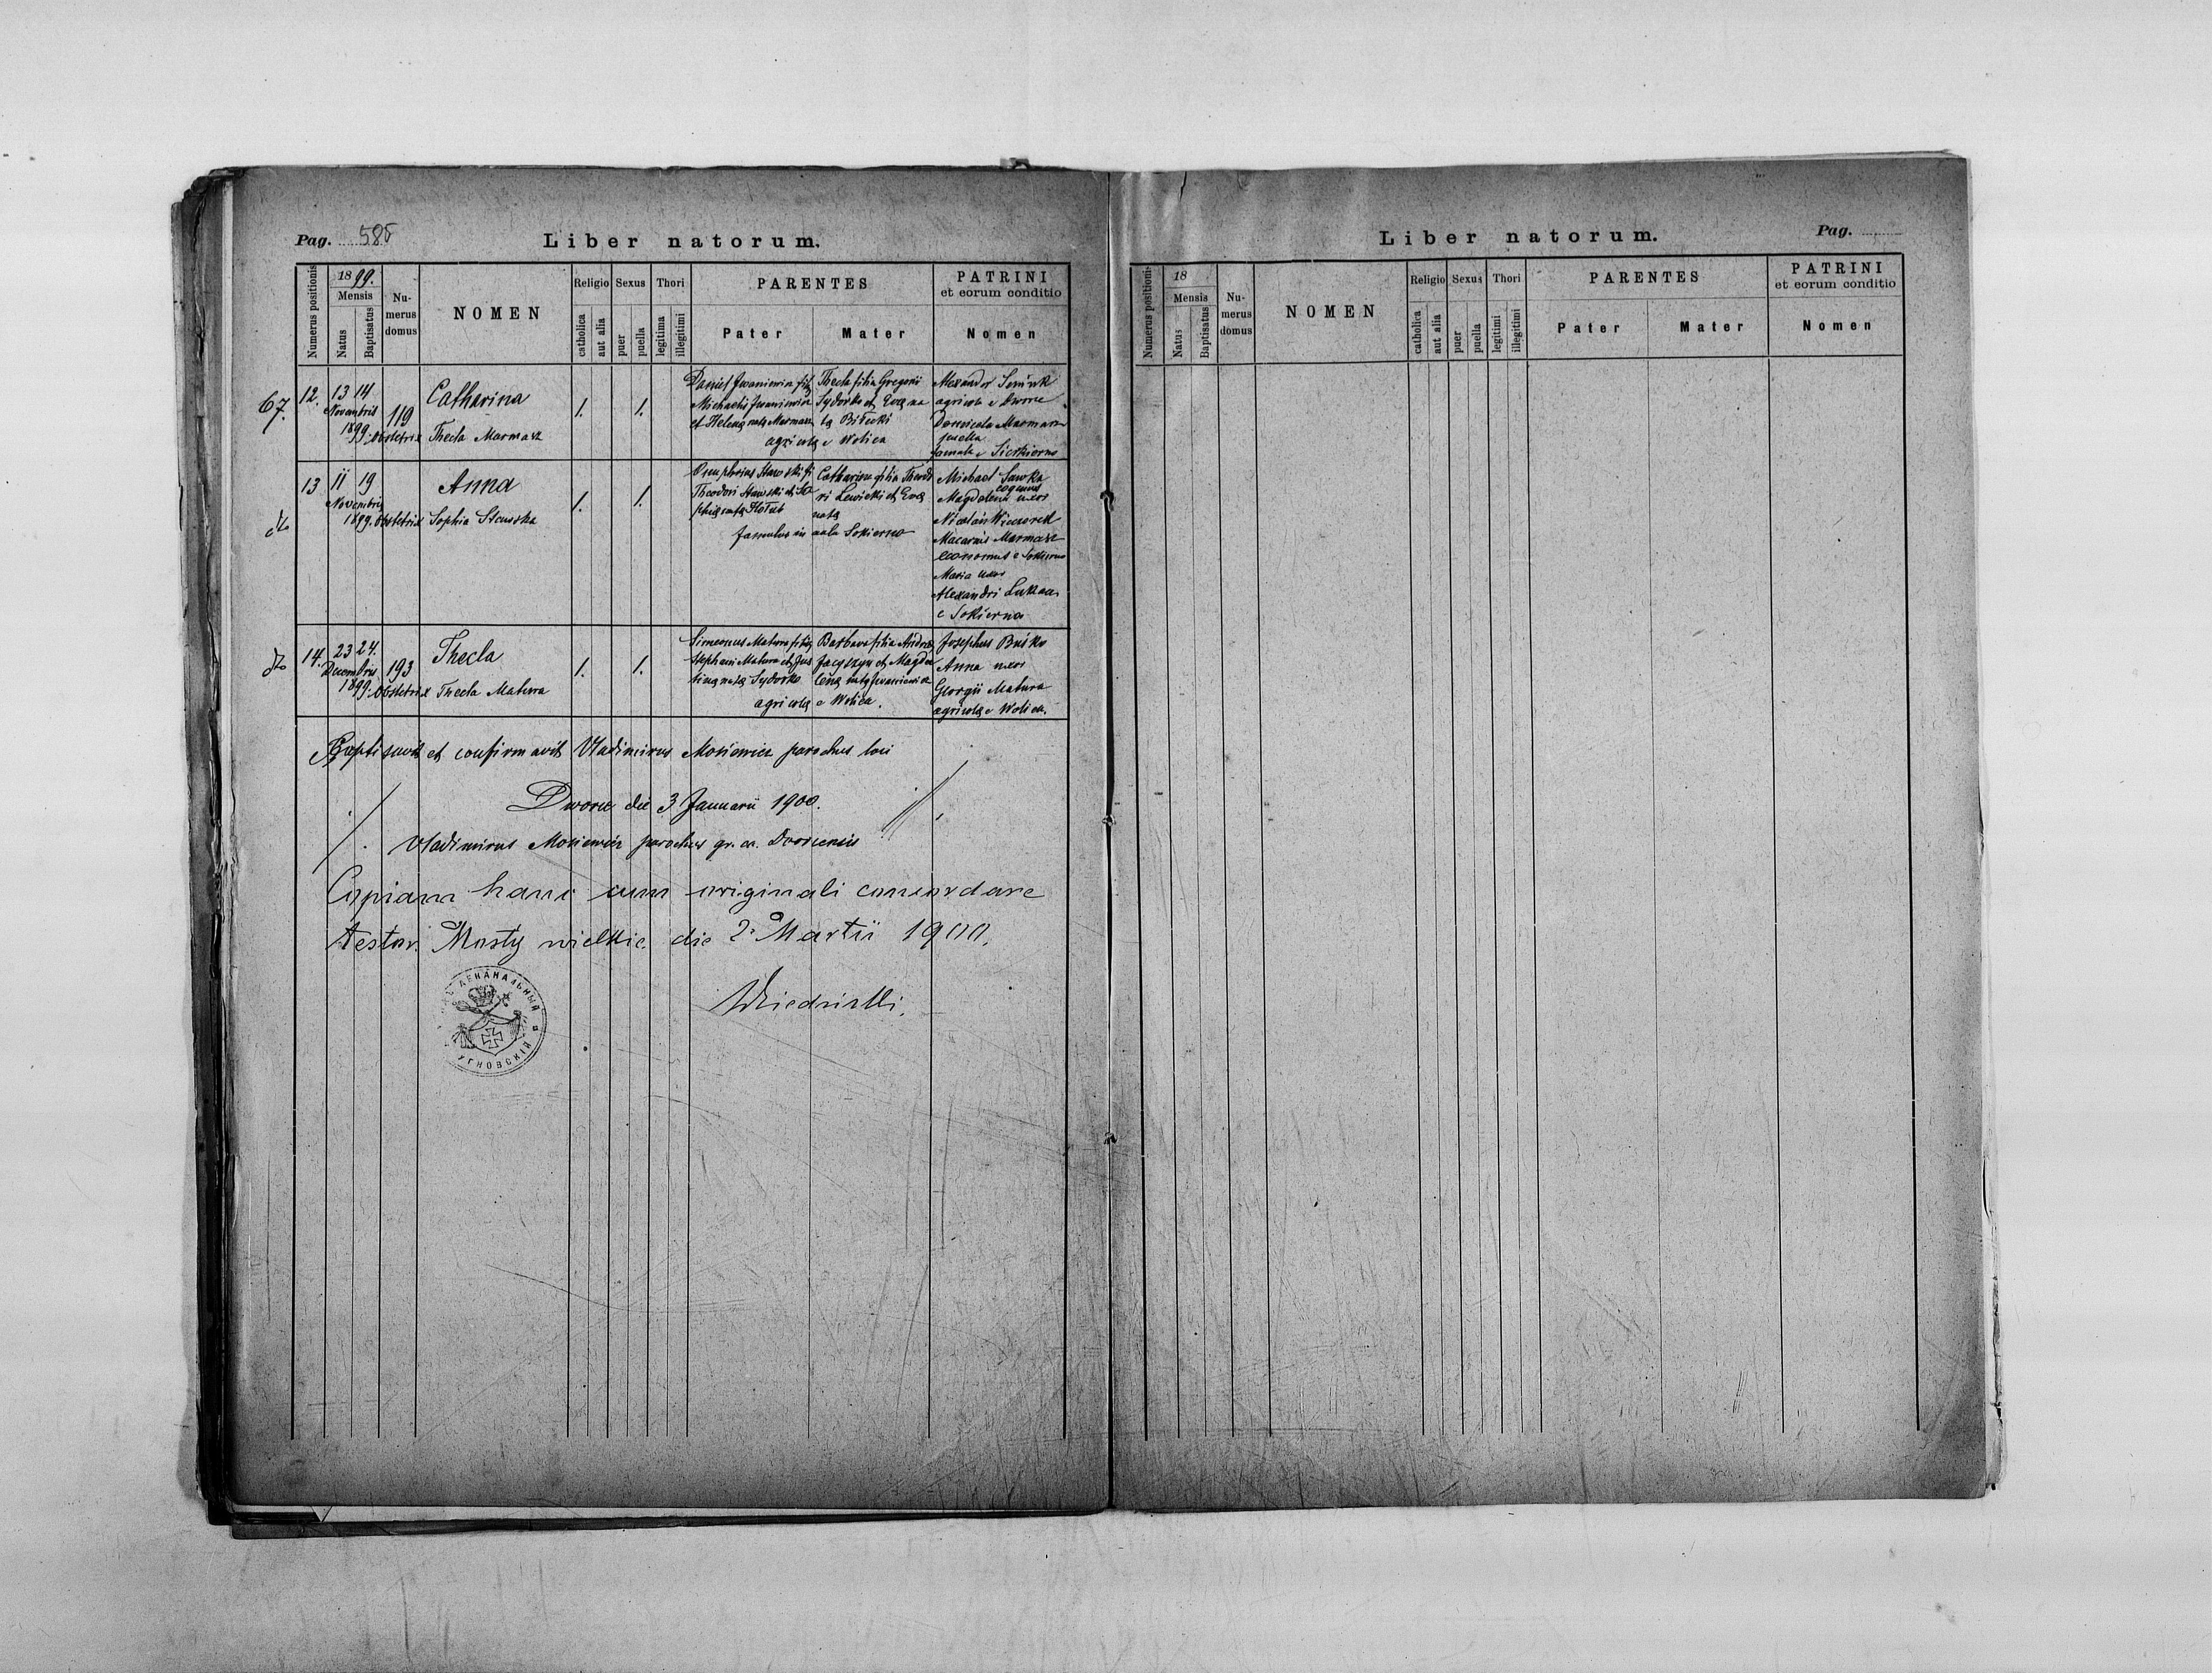 Pag. 585
Liber natorum.
Numerus positionis
1899.
Mensis
Natus
Baptisatus
Nu-
merus
domus
NOMEN
Religio
catholica
aut alia
Sexus
puer
puella
Thori
legitima
illegitimi
PARENTES
Pater
Mater
PATRINI
et eorum conditio
Nomen
67.
12.
13 14
Novembris
1899.
119
Catharina
obstetrix Thecla Marmasz
1.
1.
Daniel Iwaniewicz
Michaelis Iwaniewicz
et Helena nata Marmasz
Thecla filia Gregorii
Sydorko et Eva na
ta Biłecki
agricola e Wolica
Alexander
agricola e Dworce
Marmasz
puella
famula e
dto
13
11 19
Novembris
1899.
Anna
obstetrix Sophia
1.
1.
Onuphrius Stawski fi
Theodori Stawski et So
phia nata
Catharina filia Theodo
ri Lewicki et Eva
nata
famulus in aula Sokierno
Michael Sawka
Magdalena uxor
Nicolai Wieczorek
Macarius Marmasz
economus e
Maria uxor
Alexandri
e Sokierna
dto
14.
23 24.
Decembris
1899.
193
Thecla
obstetrix Thecla Matura
1.
1.
Simeonus Matura filius
Stephani Matura et Jus
tina nata Sydorko
Barbara filia Andreae
Jacyszyn et Magda
lena nata Iwaniewicz
agricola e Wolica.
Josephus Buśko
Anna uxor
Georgii Matura
agricola e Wolica.
Baptisavit et confirmavit Vladimirus Mosiewicz parochus loci
Dworce die 3 Januarii 1900.
Vladimirus Mosiewicz parochus gr. ca. Dvorcensis
Copiam hanc cum originali concordare
testor. Mosty wielkie die 2. Martii 1900.
ДЕКАНАЛЬНЫЙ
УГНОВСКІЙ
Liber natorum.
Pag.
Numerus positioni-
18
Mensis
Natus
Baptisatus
Nu-
merus
domus
NOMEN
Religio
catholica
aut alia
Sexus
puer
puella
Thori
legitimi
illegitimi
PARENTES
Pater
Mater
PATRINI
et eorum conditio
Nomen